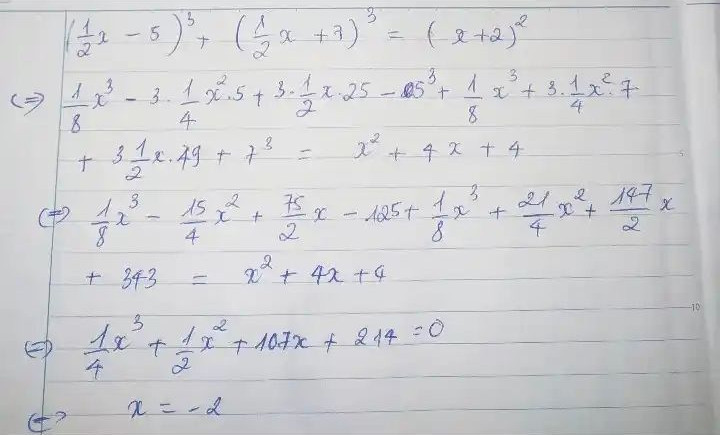 (1/2 x − 5)³ + (1/2 x + 7)³ = (x+2)²
<=> 1/8 x³ − 3 · 1/4 x² · 5 + 3 · 1/2 x · 25 − 5³ + 1/8 x³ + 3 · 1/4 x² · 7
+ 3 1/2 x · 49 + 7³ = x² + 4x + 4
<=> 1/8 x³ − 15/4 x² + 75/2 x − 125 + 1/8 x³ + 21/4 x² + 147/2 x
+ 343 = x² + 4x + 4
<=> 1/4 x³ + 1/2 x² + 107x + 214 = 0
<=> x = −2